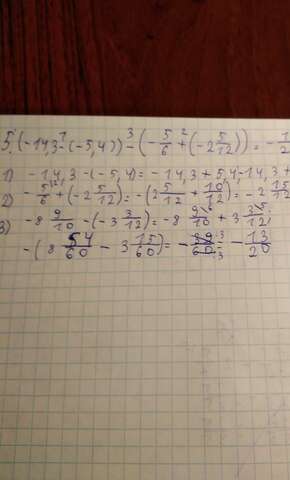 5. (-14,3 - (-5,4)) - (-5/6 + (-2 5/12)) = -1/2
1) -14,3 - (-5,4) = -14,3 + 5,4 - 14,3 +
2) -5/6 + (-2 5/12) = -(2 5/12 + 10/12) = -2 15/12
3) -8 9/10 - (-3 3/12) = -8 9/10 + 3 3/12
-(8 54/60 - 3 15/60) = -39/60 = -13/20